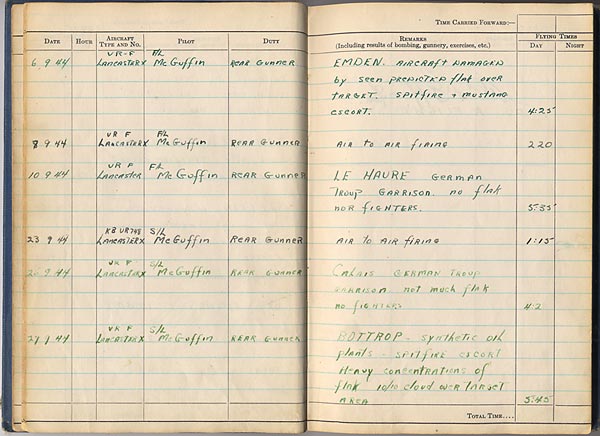 DATE HOUR AIRCRAFT TYPE AND NO. PILOT DUTY
VR-F F/L
6 9 44 LANCASTER X McGuffin REAR GUNNER
VR F F/L
8 9 44 LANCASTER X McGuffin REAR GUNNER
VR F F/L
10 9 44 LANCASTER McGuffin REAR GUNNER
KB S/L
23 9 44 LANCASTER X McGuffin REAR GUNNER
VR F S/L
9 44 LANCASTER X McGuffin REAR GUNNER
VR F S/L
27 9 44 LANCASTER X McGuffin REAR GUNNER
TIME CARRIED FORWARD:—
REMARKS FLYING TIMES
(Including results of bombing, gunnery, exercises, etc.) DAY NIGHT
EMDEN. AIRCRAFT DAMAGED
by seen PREDICTED flak over
TARGET. SPITFIRE + MUSTANG
ESCORT. 4:25
AIR TO AIR FIRING 2 20
LE HAURE GERMAN
TROUP GARRISON. no flak
nor FIGHTERS. 5:35
AIR TO AIR FIRING 1:15
CALAIS GERMAN TROUP
GARRISON not much flak
no FIGHTERS
BOTTROP - synthetic oil
plants - SPITFIRE ESCORT
HEAVY concentrations of
flak 10/10 cloud over TARGET
AREA 5:45
TOTAL TIME....